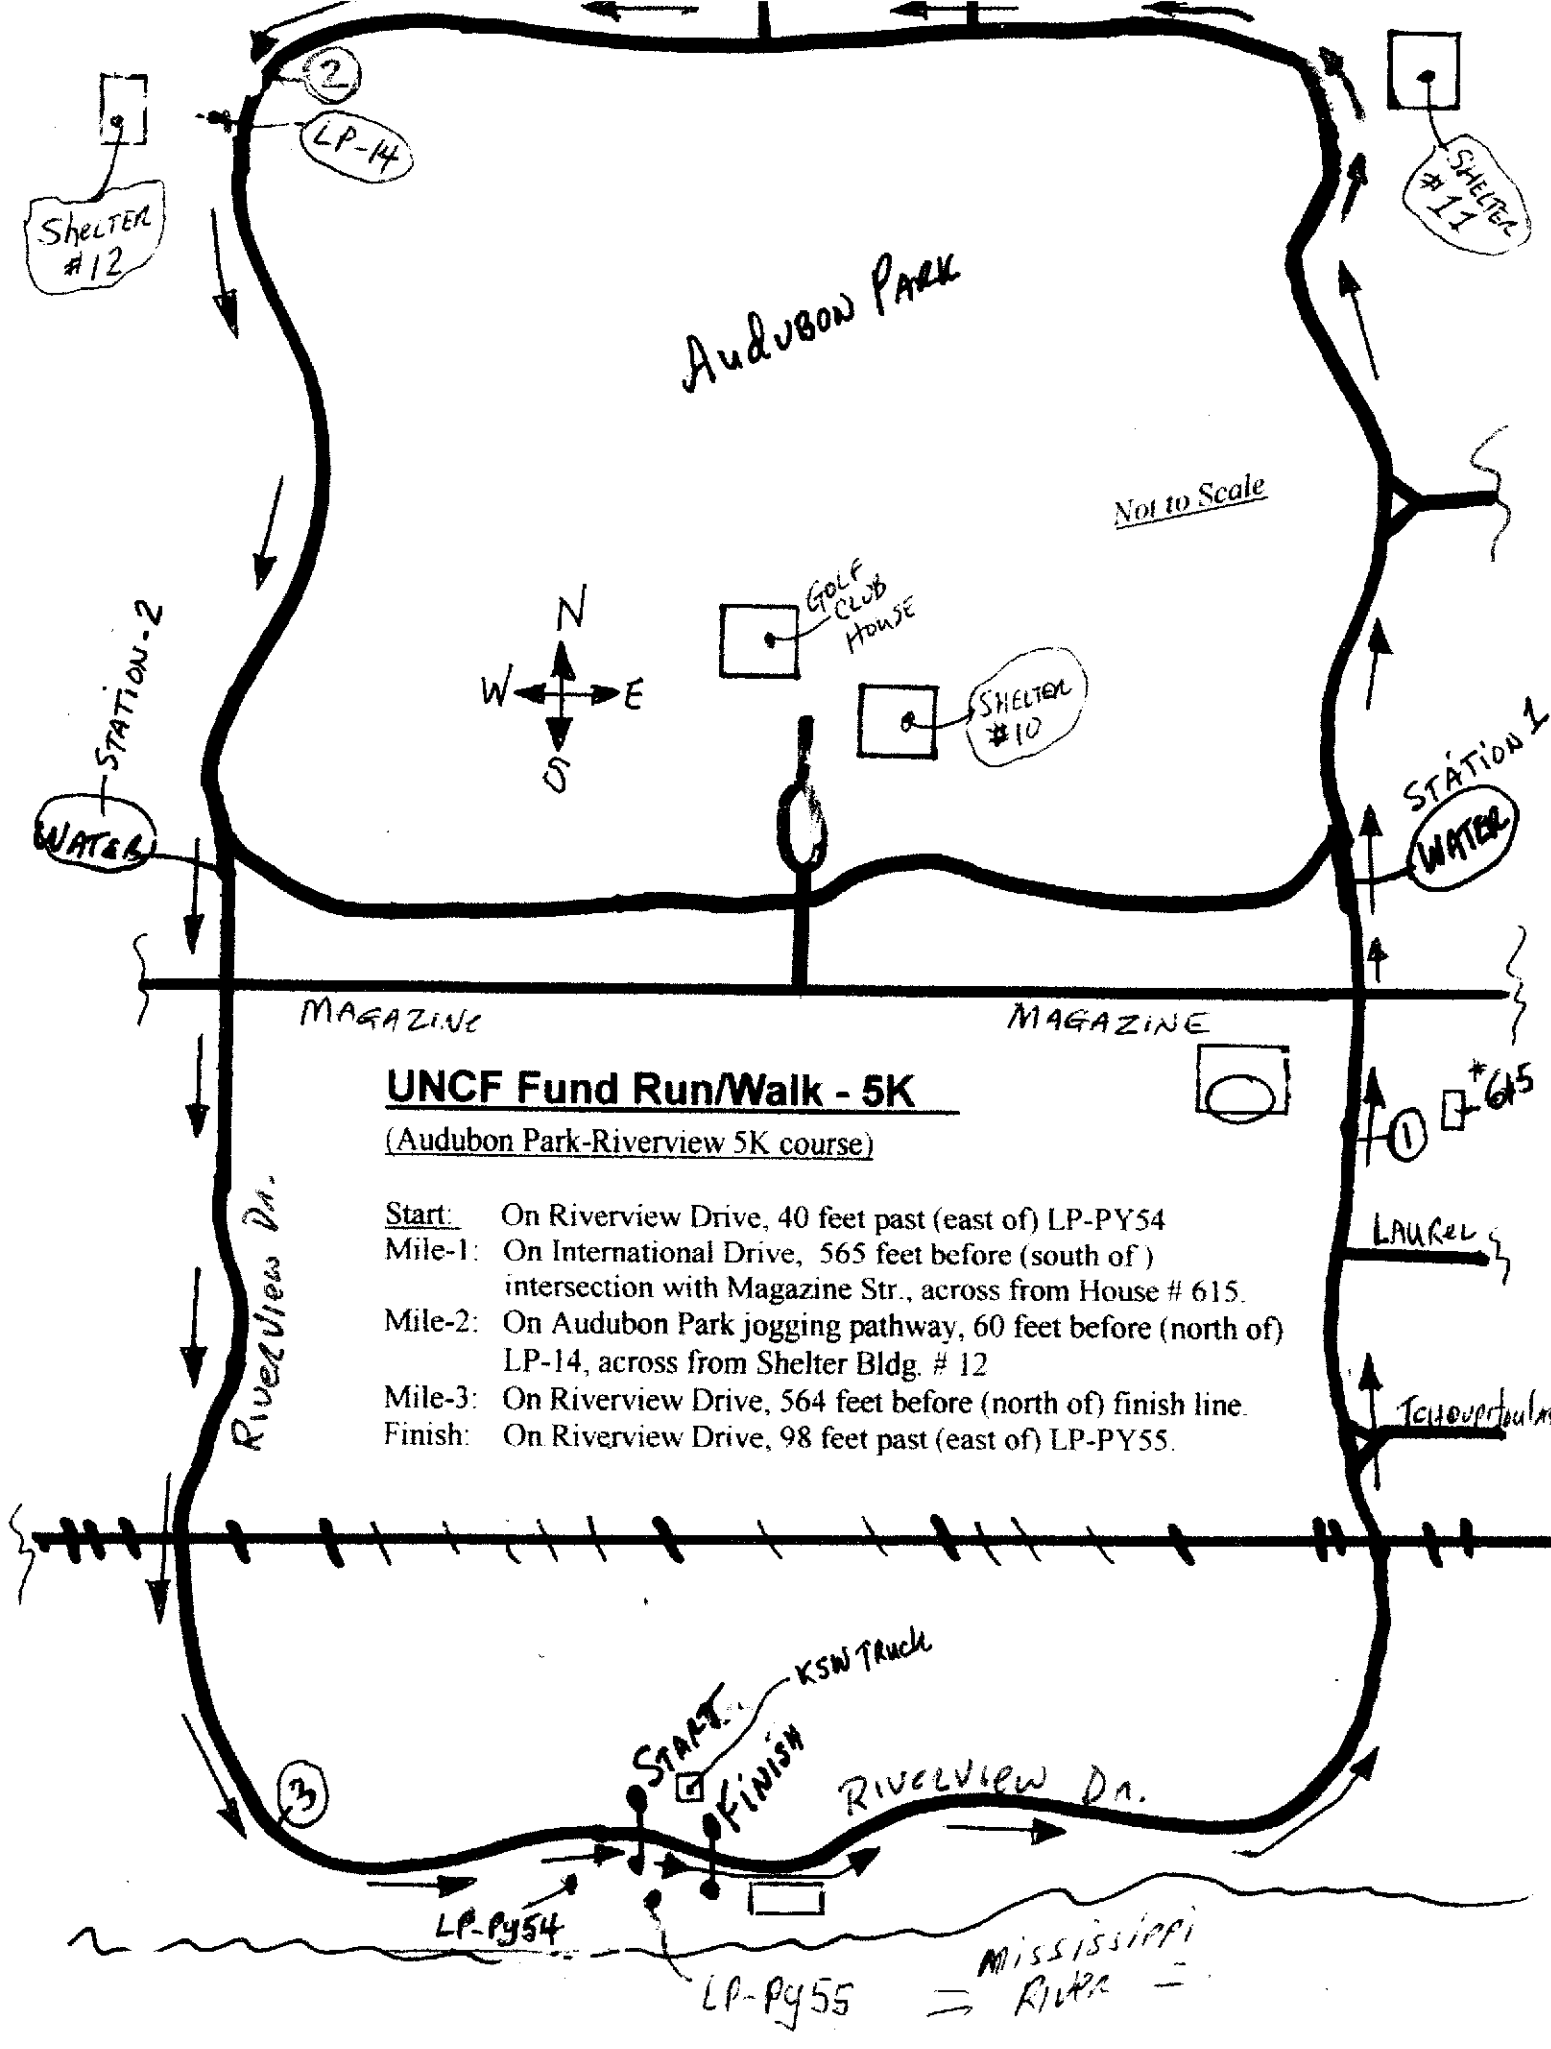 2
LP-14
SHELTER
#12
SHELTER
#11
AUDUBON PARK
Not to Scale
GOLF
CLUB
HOUSE
N
W E
S
SHELTER
#10
STATION-2
WATER
STATION 1
WATER
MAGAZINE
MAGAZINE
UNCF Fund Run/Walk - 5K
(Audubon Park-Riverview 5K course)
#615
1
Start: On Riverview Drive, 40 feet past (east of) LP-PY54
Mile-1: On International Drive, 565 feet before (south of )
intersection with Magazine Str., across from House # 615.
Mile-2: On Audubon Park jogging pathway, 60 feet before (north of)
LP-14, across from Shelter Bldg. # 12
Mile-3: On Riverview Drive, 564 feet before (north of) finish line.
Finish: On Riverview Drive, 98 feet past (east of) LP-PY55.
RIVERVIEW DR.
LAUREL
KSW TRUCK
START
FINISH
3
RIVERVIEW DR.
LP-PY54
LP-PY55
MISSISSIPPI
RIVER